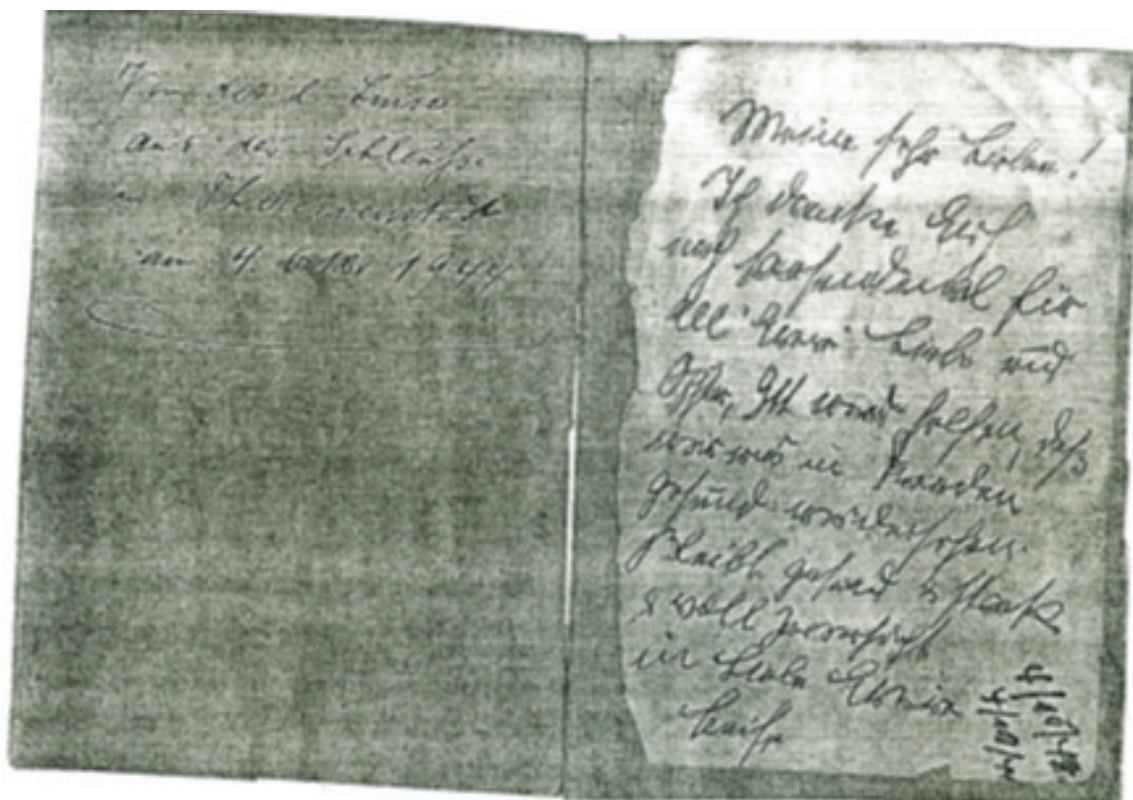 Von der l. Luise
aus der Schleuse
in Theresienstadt
am 4. Oktbr 1944
Meine sehr Lieben!
Ich danke Euch
noch tausendmal für
all' Eure Liebe und
Opfer, Gott wird helfen, daß
wir uns in Frieden
gesund wiedersehen.
Bleibt gesund & stark
& voll Zuversicht
in Liebe Eure
Luise